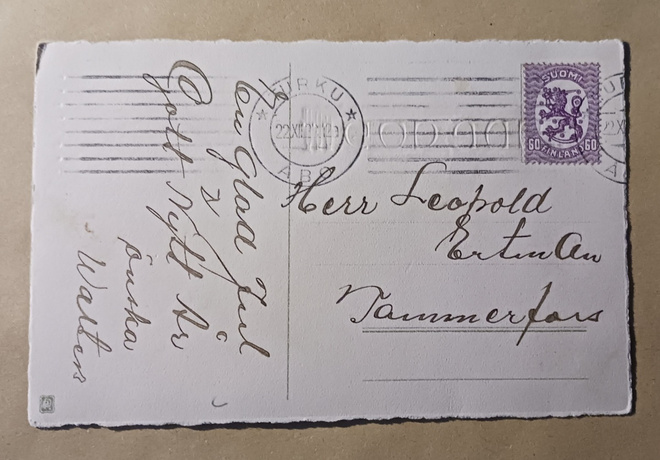 En Glad Jul
&
Gott Nytt År
önska
Walters
TURKU
22.XII.
ÅBO
SUOMI
60 FINLAND 60
Herr Leopold
Ertman
Tammerfors